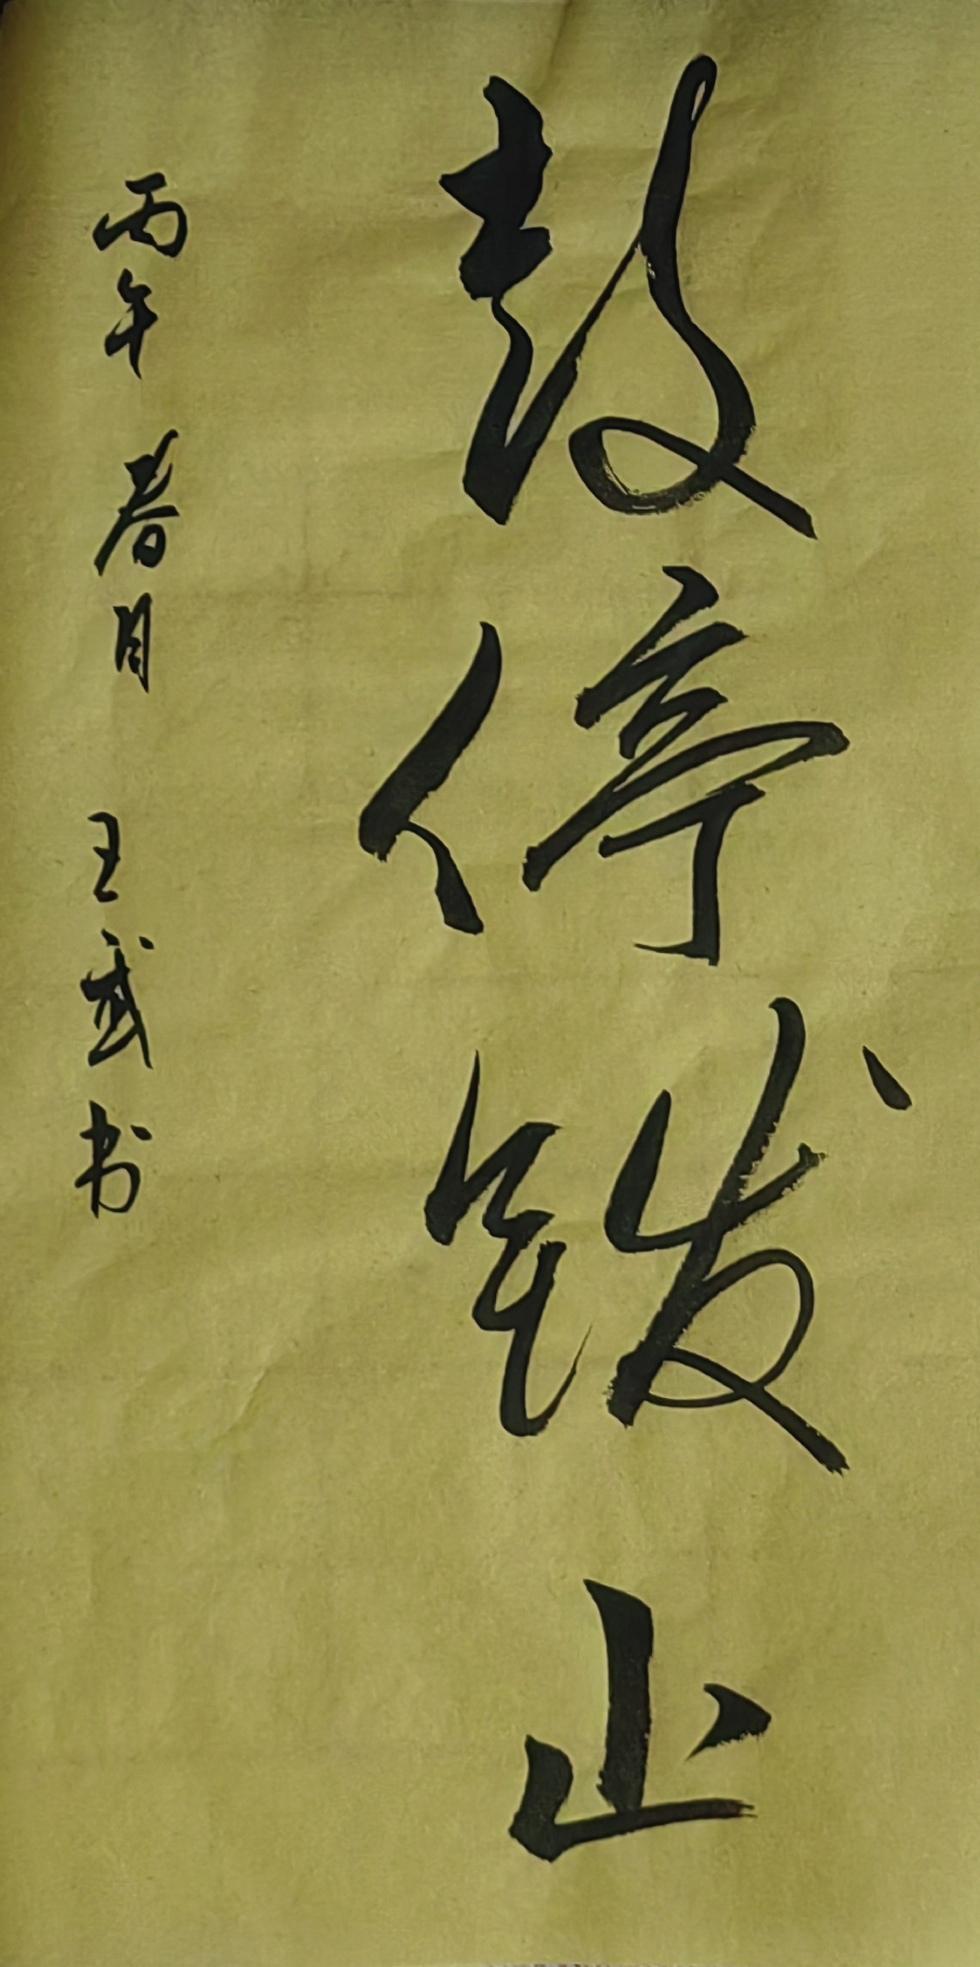 鼓停钹止
丙午 春月 王武书